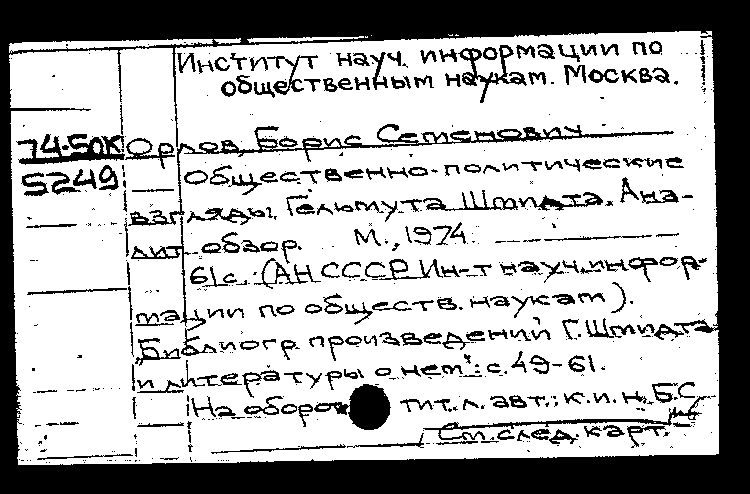 Институт науч. информации по
общественным наукам. Москва.
74-50К Орлов, Борис Семенович
5249 Общественно-политические
взгляды Гельмута Шмидта. Ана-
лит. обзор. М., 1974.
61 с. (АН СССР. Ин-т науч. инфор-
мации по обществ. наукам).
"Библиогр. произведений Г. Шмидта
и литературы о нем": с. 49-61.
На оборот тит. л. авт.: к.и.н. Б.С.
См. след. карт.